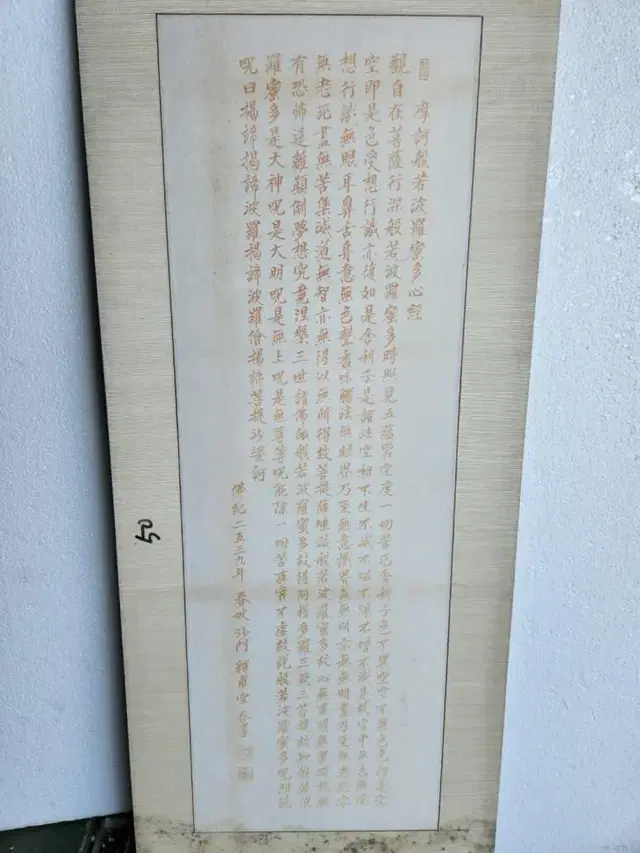 摩訶般若波羅蜜多心經
觀自在菩薩行深般若波羅蜜多時照見五蘊皆空度一切苦厄舍利子色不異空空不異色色即是空
空即是色受想行識亦復如是舍利子是諸法空相不生不滅不垢不淨不增不減是故空中無色無受
想行識無眼耳鼻舌身意無色聲香味觸法無眼界乃至無意識界無無明亦無無明盡乃至無老死亦
無老死盡無苦集滅道無智亦無得以無所得故菩提薩埵依般若波羅蜜多故心無罣礙無罣礙故無
有恐怖遠離顛倒夢想究竟涅槃三世諸佛依般若波羅蜜多故得阿耨多羅三藐三菩提故知般若波
羅蜜多是大神呪是大明呪是無上呪是無等等呪能除一切苦真實不虛故說般若波羅蜜多呪即說
呪曰揭諦揭諦波羅揭諦波羅僧揭諦菩提沙婆訶
佛紀二五三九年 春城沙門 釋
50